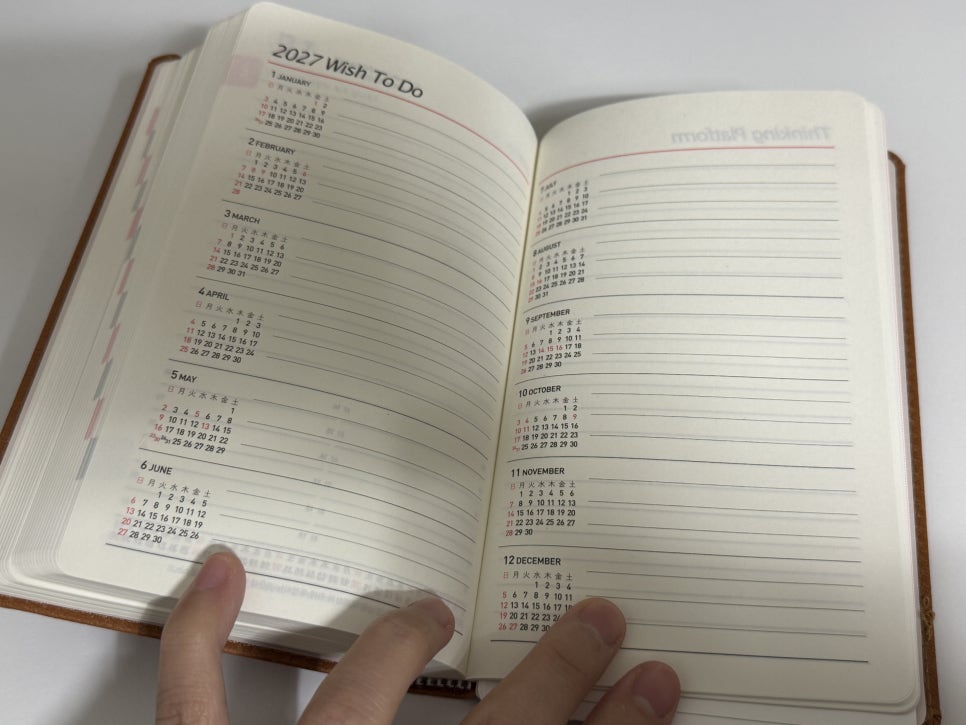 2027 Wish To Do
1 JANUARY
日 月 火 水 木 金 土
1 2
3 4 5 6 7 8 9
10 11 12 13 14 15 16
17 18 19 20 21 22 23
24/31 25 26 27 28 29 30
2 FEBRUARY
日 月 火 水 木 金 土
1 2 3 4 5 6
7 8 9 10 11 12 13
14 15 16 17 18 19 20
21 22 23 24 25 26 27
28
3 MARCH
日 月 火 水 木 金 土
1 2 3 4 5 6
7 8 9 10 11 12 13
14 15 16 17 18 19 20
21 22 23 24 25 26 27
28 29 30 31
4 APRIL
日 月 火 水 木 金 土
1 2 3
4 5 6 7 8 9 10
11 12 13 14 15 16 17
18 19 20 21 22 23 24
25 26 27 28 29 30
5 MAY
日 月 火 水 木 金 土
1
2 3 4 5 6 7 8
9 10 11 12 13 14 15
16 17 18 19 20 21 22
23/30 24/31 25 26 27 28 29
6 JUNE
日 月 火 水 木 金 土
1 2 3 4 5
6 7 8 9 10 11 12
13 14 15 16 17 18 19
20 21 22 23 24 25 26
27 28 29 30
Thinking Platform
7 JULY
日 月 火 水 木 金 土
1 2 3
4 5 6 7 8 9 10
11 12 13 14 15 16 17
18 19 20 21 22 23 24
25 26 27 28 29 30 31
8 AUGUST
日 月 火 水 木 金 土
1 2 3 4 5 6 7
8 9 10 11 12 13 14
15 16 17 18 19 20 21
22 23 24 25 26 27 28
29 30 31
9 SEPTEMBER
日 月 火 水 木 金 土
1 2 3 4
5 6 7 8 9 10 11
12 13 14 15 16 17 18
19 20 21 22 23 24 25
26 27 28 29 30
10 OCTOBER
日 月 火 水 木 金 土
1 2
3 4 5 6 7 8 9
10 11 12 13 14 15 16
17 18 19 20 21 22 23
24/31 25 26 27 28 29 30
11 NOVEMBER
日 月 火 水 木 金 土
1 2 3 4 5 6
7 8 9 10 11 12 13
14 15 16 17 18 19 20
21 22 23 24 25 26 27
28 29 30
12 DECEMBER
日 月 火 水 木 金 土
1 2 3 4
5 6 7 8 9 10 11
12 13 14 15 16 17
19 20 21 22 23
26 27 28 29